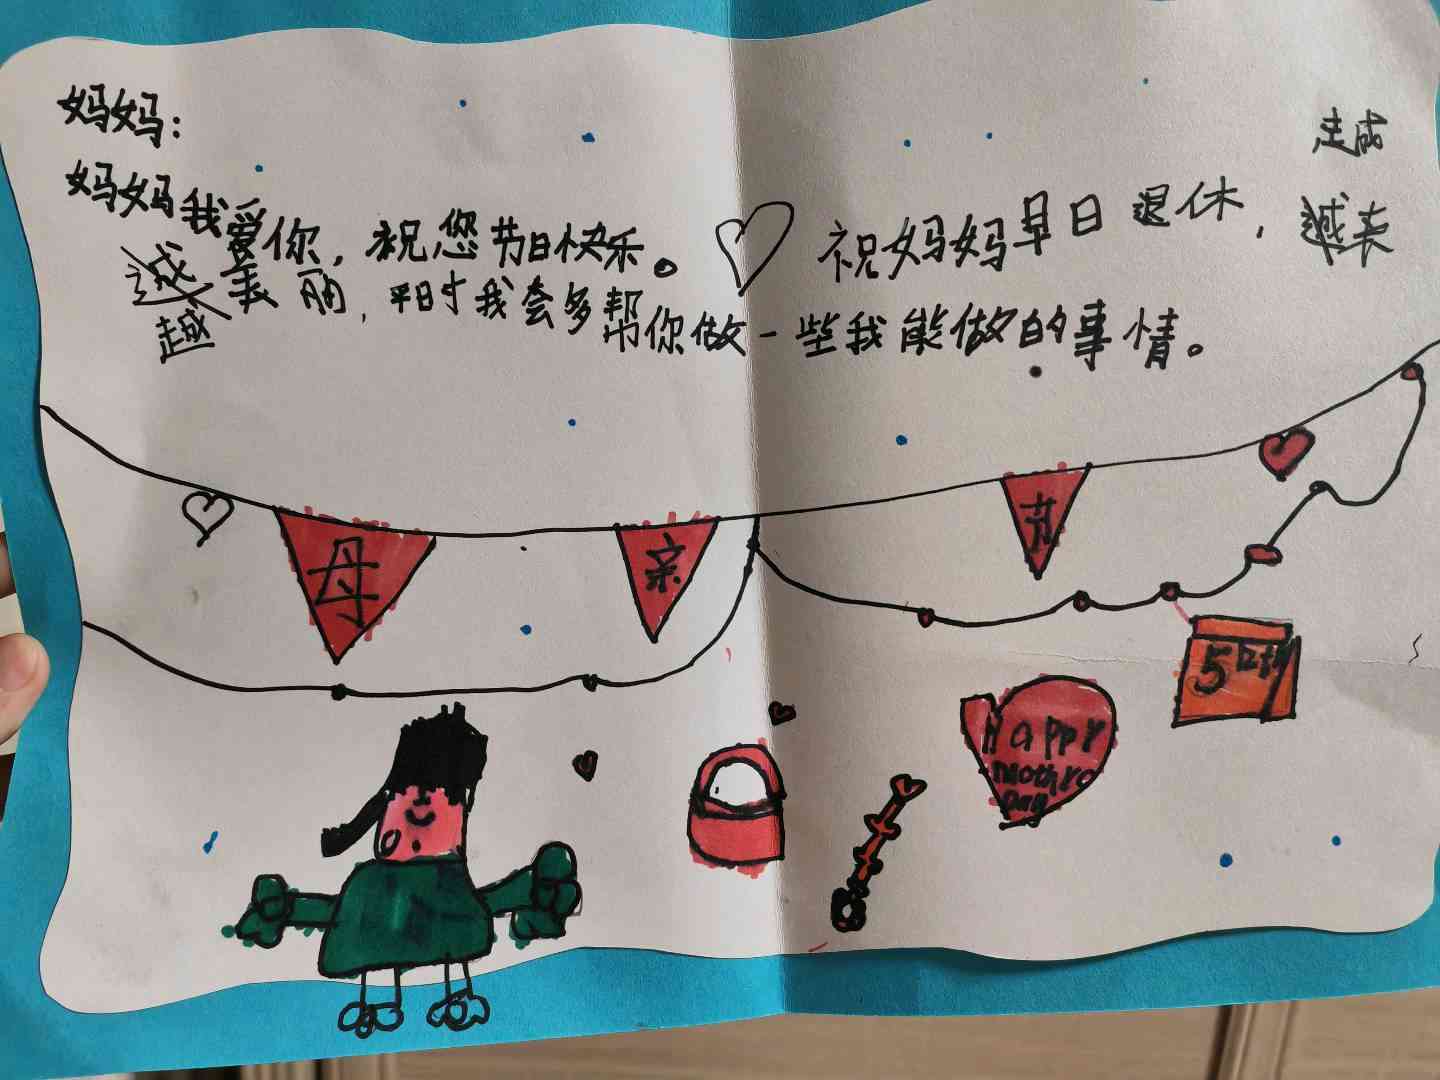 妈妈:
妈妈我爱你,祝您节日快乐。祝妈妈早日退休,越来
越美丽,平时我会多帮你做一些我能做的事情。
母 亲 节
Happy
mothro
Day